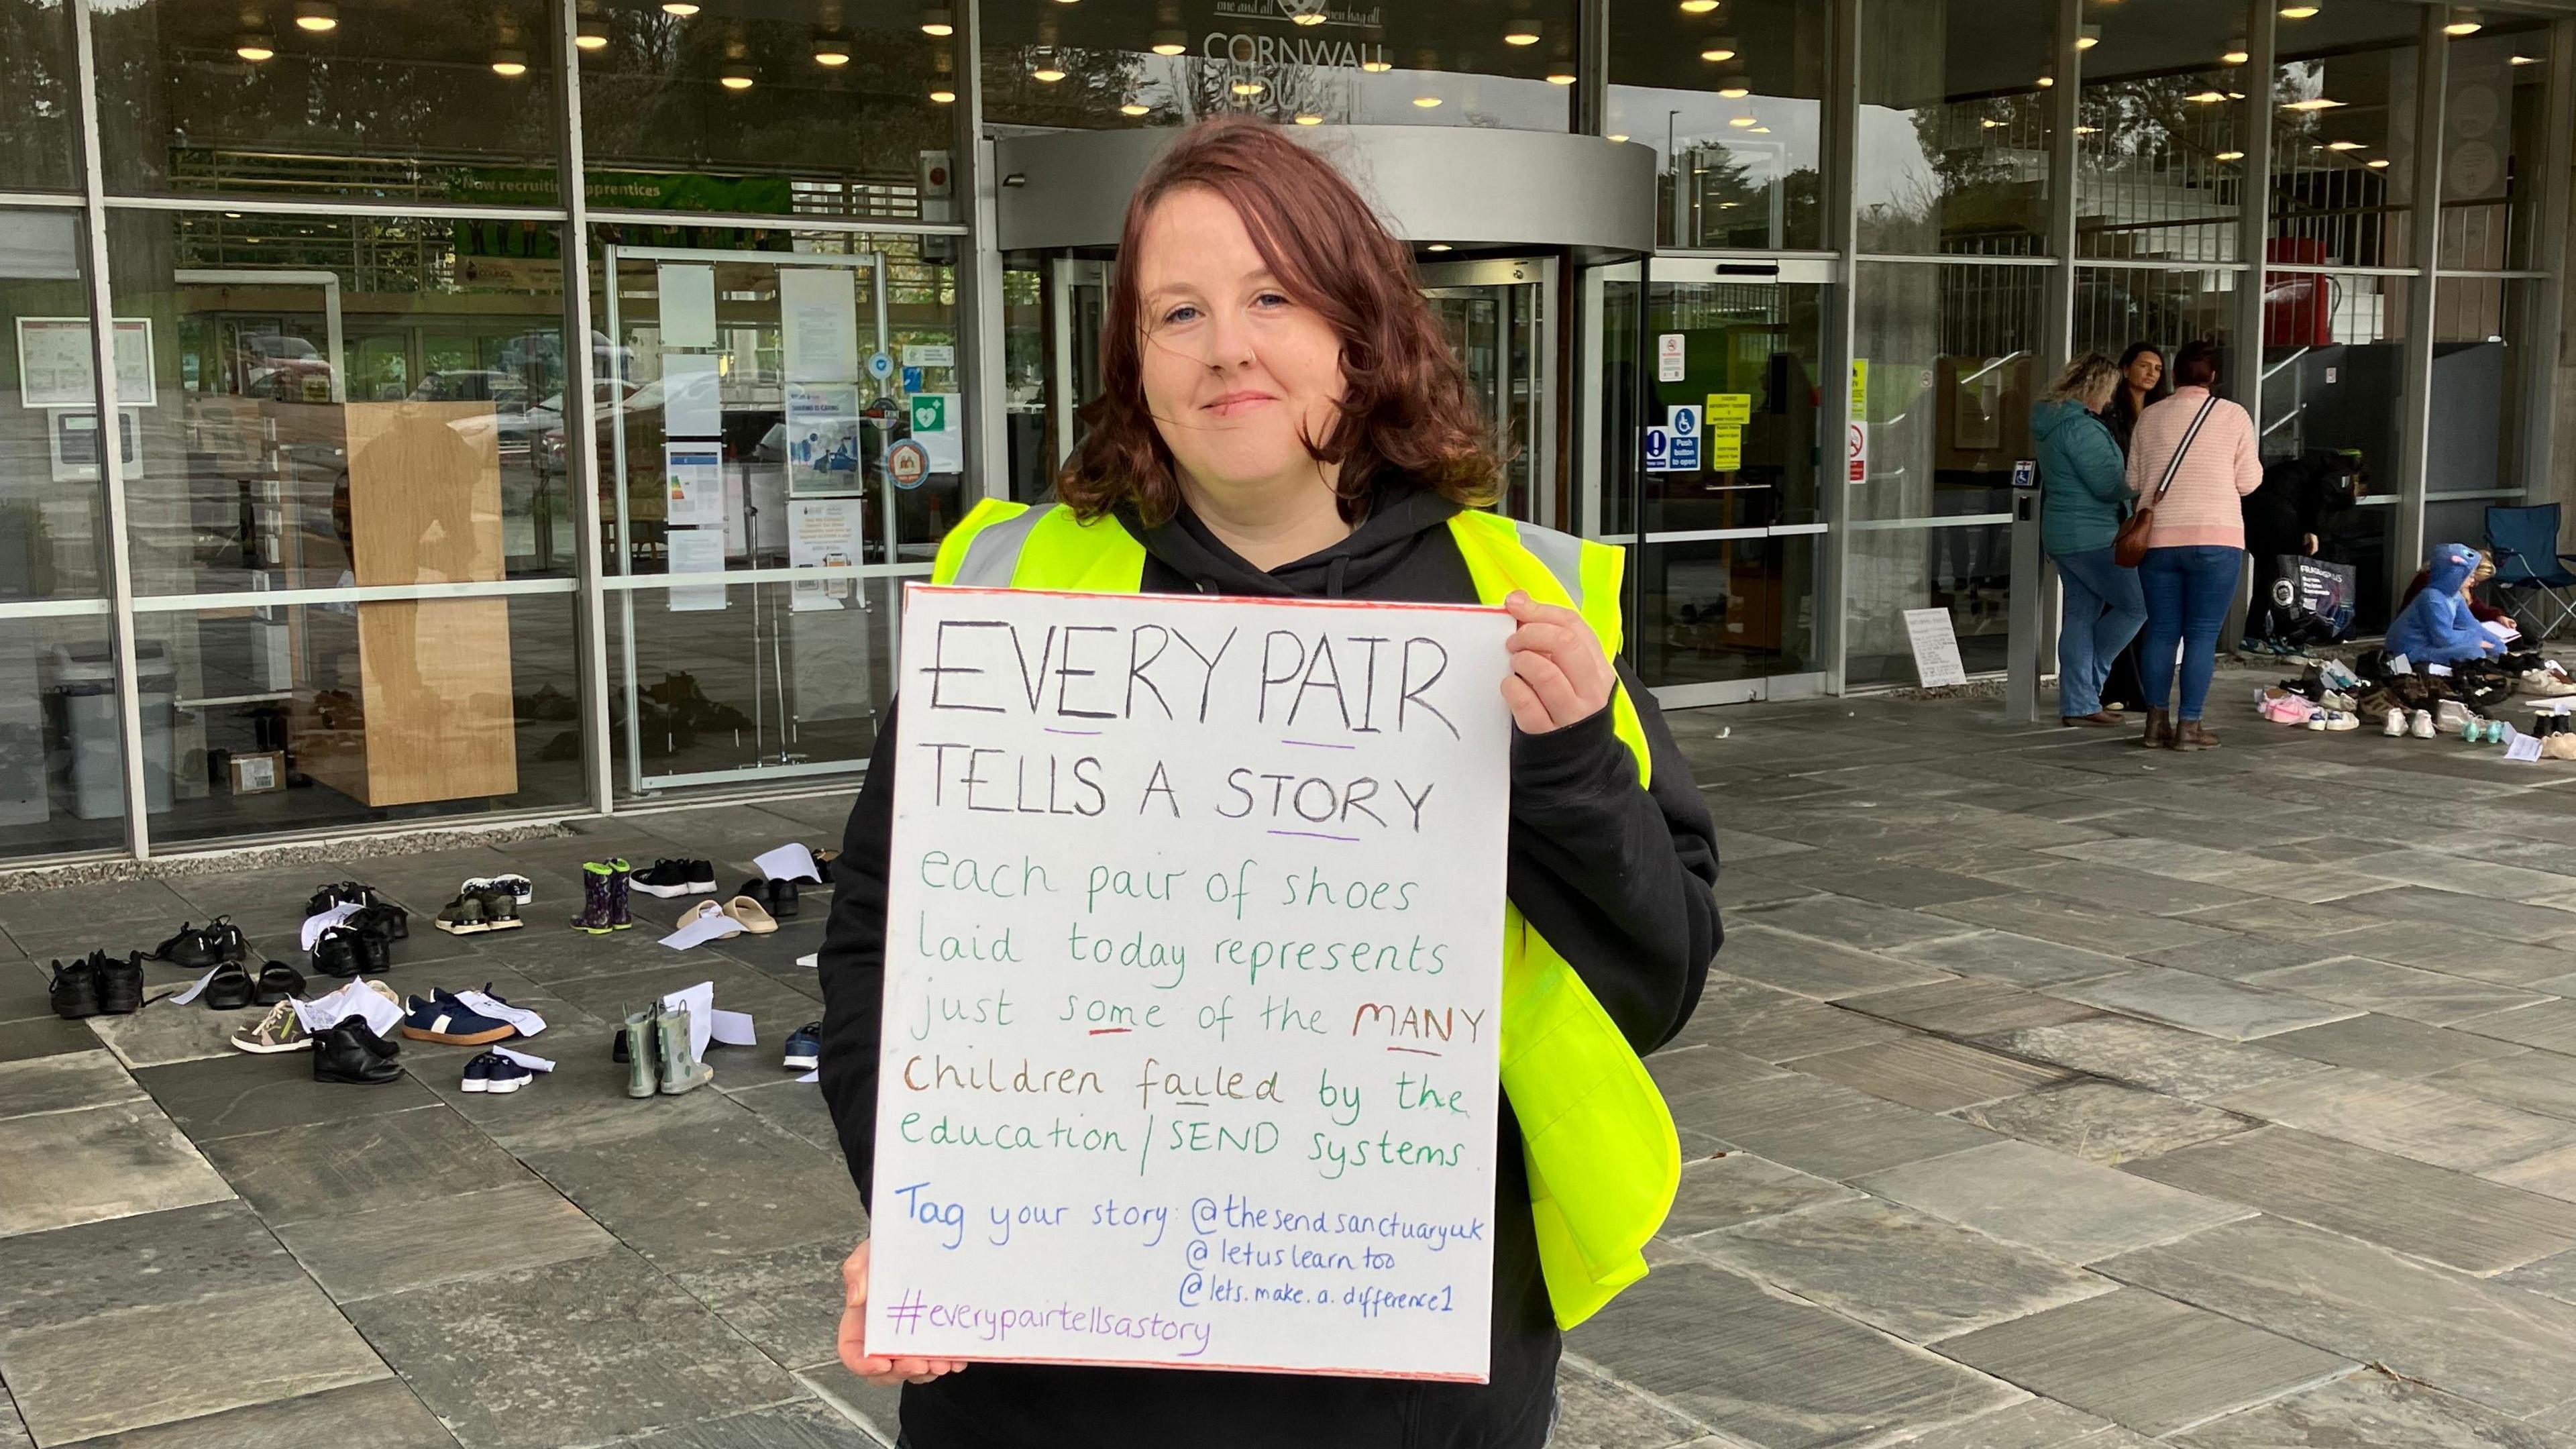 one and all
CORNWALL
COUNCIL
Now recruiting apprentices
Push
button
to open
EVERY PAIR
TELLS A STORY
each pair of shoes
laid today represents
just some of the MANY
children failed by the
education / SEND systems.
Tag your story: @thesendsanctuaryuk
@letuslearntoo
@lets.make.a.difference1
#everypairtellsastory